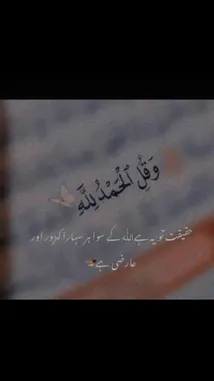 وَقُلِ ٱلْحَمْدُ لِلَّهِ
حقیقت تو یہ ہے اللہ کے سوا ہر سہارا کمزور اور
عارضی ہے